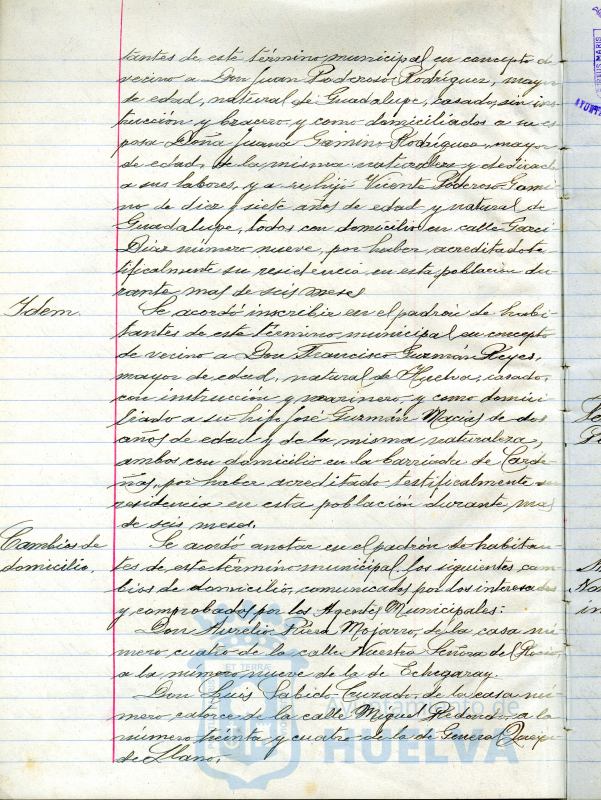 tantes de este término municipal en concepto de
vecino a Don Juan Poderoso Rodríguez, mayor
de edad, natural de Guadalupe, casado, sin ins-
trucción y bracero, y como domiciliados a su es-
posa Doña Juana Gamino Rodríguez, mayor
de edad, de la misma naturaleza y dedicada
a sus labores, y a su hijo Vicente Poderoso Gami-
no de diez y siete años de edad y natural de
Guadalupe, todos con domicilio en calle Garci
Díaz número nueve, por haber acreditado tes-
tificalmente su residencia en esta población du-
rante mas de seis meses
Idem.
Se acordó inscribir en el padrón de habi-
tantes de este término municipal en concepto
de vecino a Don Francisco Guzmán Reyes,
mayor de edad, natural de Huelva, casado,
con instrucción y marinero, y como domici-
liado a su hijo José Guzmán Macías de dos
años de edad y de la misma naturaleza,
ambos con domicilio en la barriada de Carde-
ñas, por haber acreditado testificalmente su
residencia en esta población durante mas
de seis meses.
Cambios de
domicilio.
Se acordó anotar en el padrón de habitan-
tes de este término municipal los siguientes cam-
bios de domicilio, comunicados por dos interesados
y comprobados por los Agentes Municipales:
Don Aurelio Riera Mojarro, de la casa nú-
mero cuatro de la calle Nuestra Señora del Rocío,
a la número nueve de la de Echegaray.
Don Luis Sabido Cruzado, de la casa nú-
mero catorce de la calle Miguel Redondo, a la
número treinta y cuatro de la de General Queipo
de Llano.
Ayuntamiento de
HUELVA